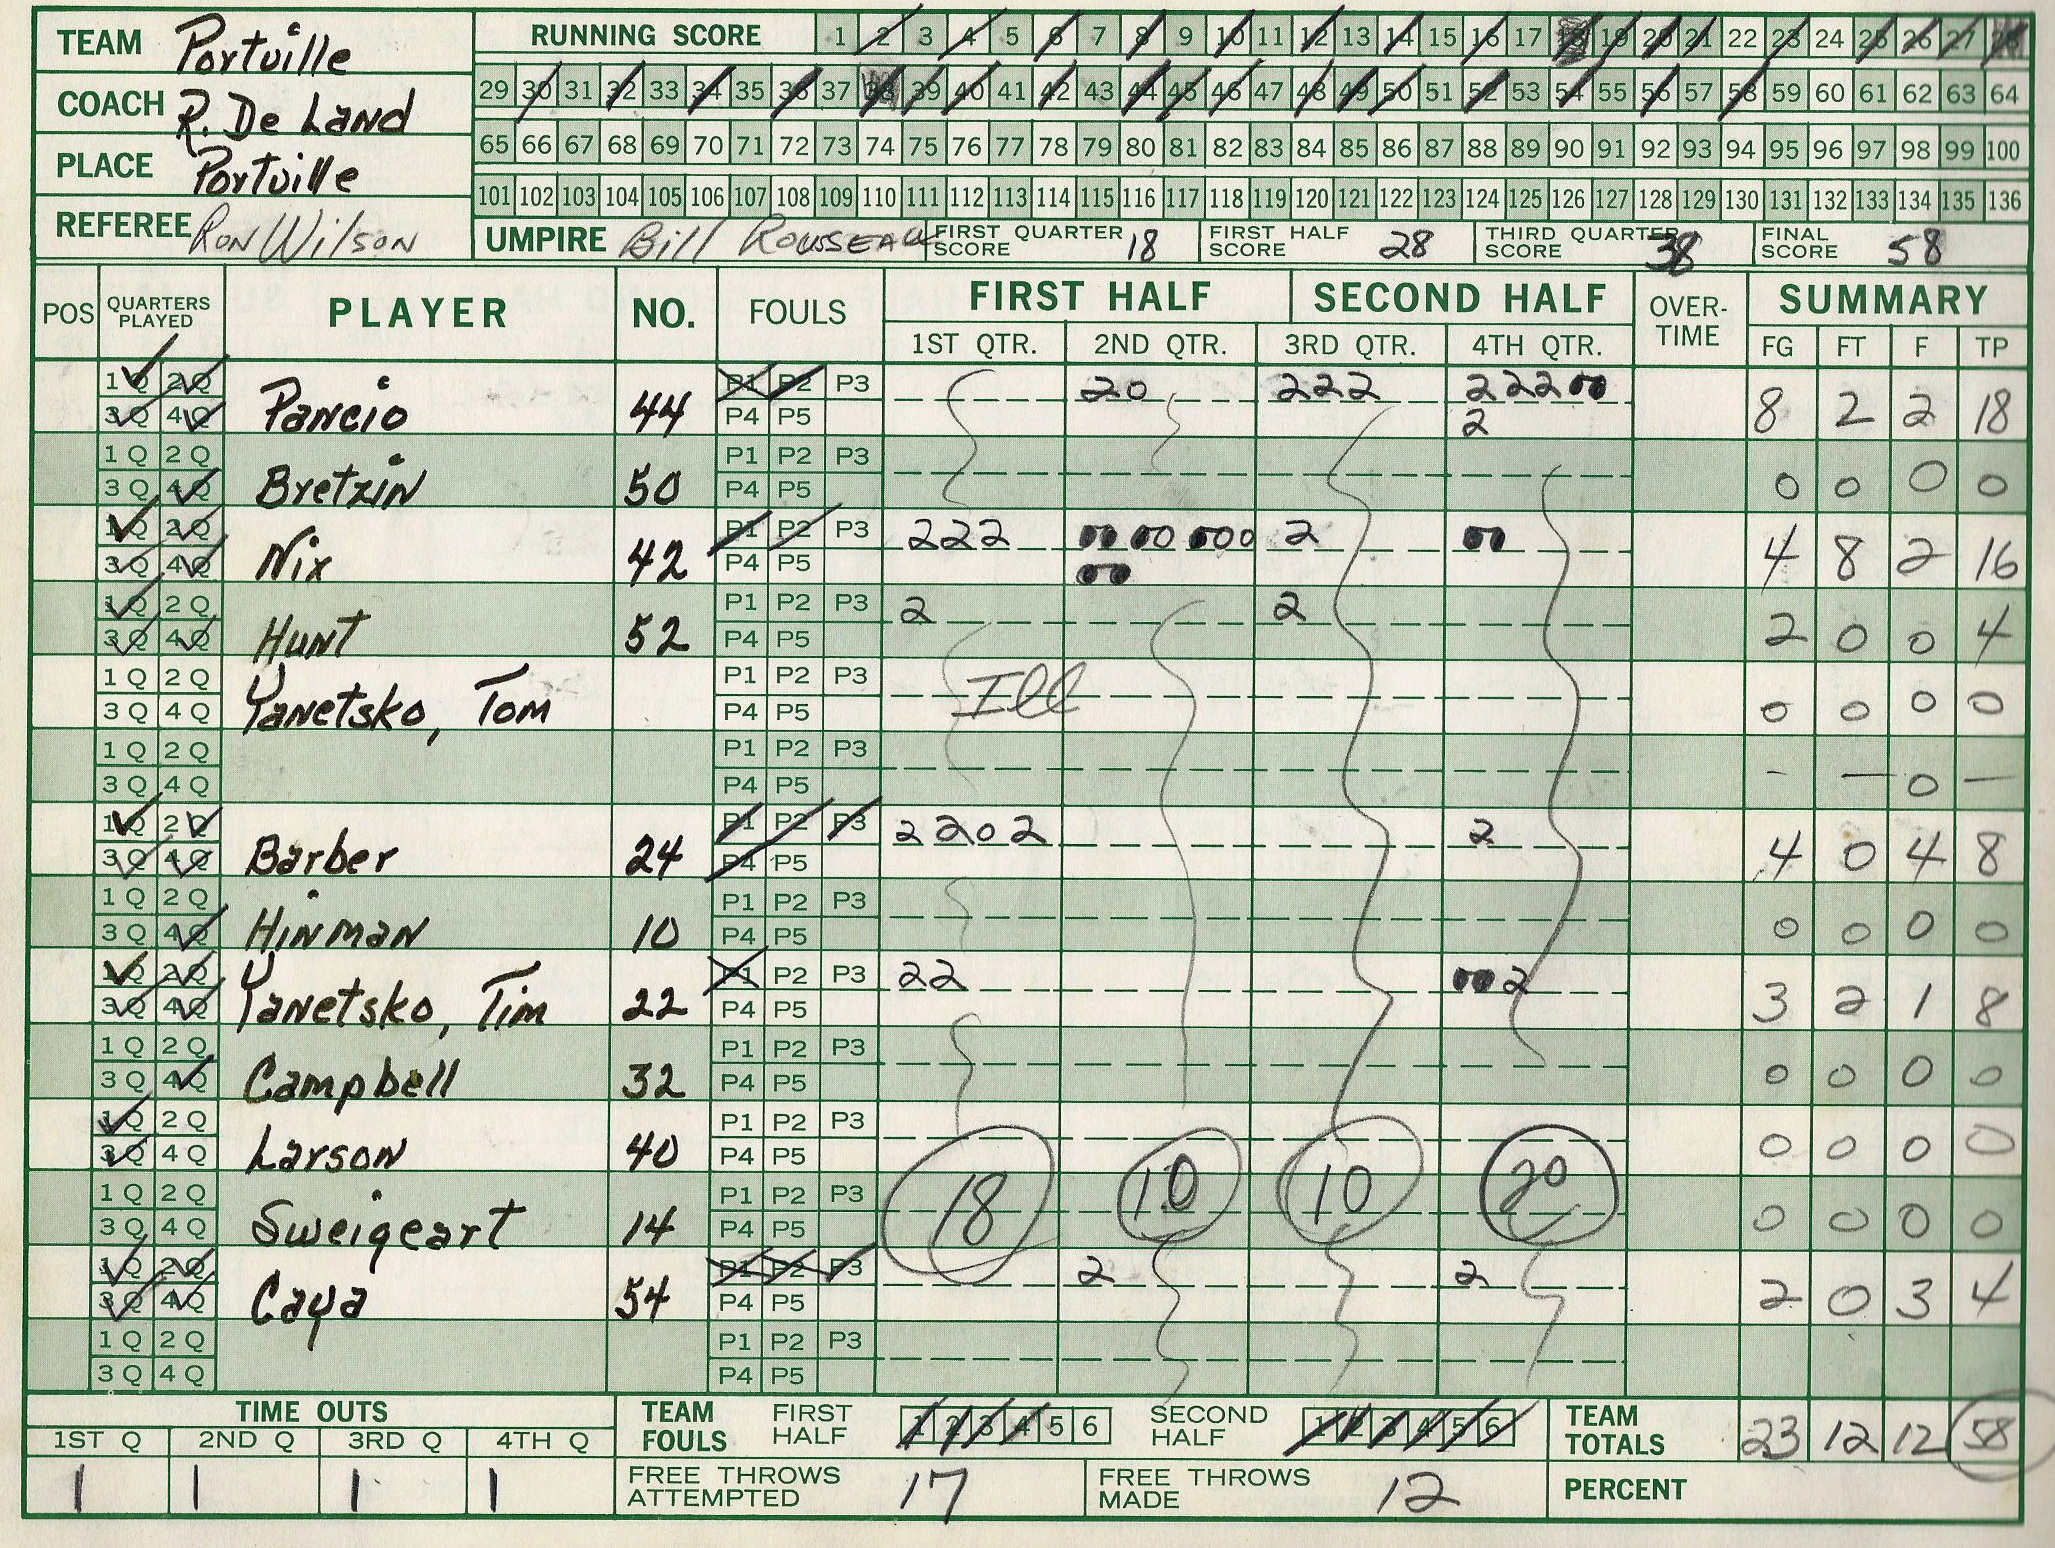 TEAM Portville
RUNNING SCORE 1 2 3 4 5 6 7 8 9 10 11 12 13 14 15 16 17 18 19 20 21 22 23 24 25 26 27 28
COACH R. De Land
29 30 31 32 33 34 35 36 37 38 39 40 41 42 43 44 45 46 47 48 49 50 51 52 53 54 55 56 57 58 59 60 61 62 63 64
65 66 67 68 69 70 71 72 73 74 75 76 77 78 79 80 81 82 83 84 85 86 87 88 89 90 91 92 93 94 95 96 97 98 99 100
PLACE Portville
101 102 103 104 105 106 107 108 109 110 111 112 113 114 115 116 117 118 119 120 121 122 123 124 125 126 127 128 129 130 131 132 133 134 135 136
REFEREE Ron Wilson
UMPIRE Bill Rousseau
FIRST QUARTER SCORE 18
FIRST HALF SCORE 28
THIRD QUARTER SCORE 38
FINAL SCORE 58
POS QUARTERS PLAYED PLAYER NO. FOULS FIRST HALF SECOND HALF OVER-TIME SUMMARY
1ST QTR. 2ND QTR. 3RD QTR. 4TH QTR. FG FT F TP
1 Q 2 Q P1 P2 P3 20 222 222 00
3 Q 4 Q Pancio 44 P4 P5 2 8 2 2 18
1 Q 2 Q P1 P2 P3
3 Q 4 Q Bretzin 50 P4 P5 0 0 0 0
1 Q 2 Q P1 P2 P3 222 00 00 000 2 00
3 Q 4 Q Nix 42 P4 P5 00 4 8 2 16
1 Q 2 Q P1 P2 P3 2 2
3 Q 4 Q Hunt 52 P4 P5 2 0 0 4
1 Q 2 Q P1 P2 P3 Ill
3 Q 4 Q Yanetsko, Tom P4 P5 0 0 0 0
1 Q 2 Q P1 P2 P3
3 Q 4 Q P4 P5 - — 0 —
1 Q 2 Q P1 P2 P3 2 202 2
3 Q 4 Q Barber 24 P4 P5 4 0 4 8
1 Q 2 Q P1 P2 P3
3 Q 4 Q Hinman 10 P4 P5 0 0 0 0
1 Q 2 Q P1 P2 P3 22 00 2
3 Q 4 Q Yanetsko, Tim 22 P4 P5 3 2 1 8
1 Q 2 Q P1 P2 P3
3 Q 4 Q Campbell 32 P4 P5 0 0 0 0
1 Q 2 Q P1 P2 P3
3 Q 4 Q Larson 40 P4 P5 0 0 0 0
1 Q 2 Q P1 P2 P3 18 10 10 20
3 Q 4 Q Sweigeart 14 P4 P5 0 0 0 0
1 Q 2 Q P1 P2 P3 2 2
3 Q 4 Q Caya 54 P4 P5 2 0 3 4
1 Q 2 Q P1 P2 P3
3 Q 4 Q P4 P5
TIME OUTS
1ST Q 2ND Q 3RD Q 4TH Q
1 1 1 1
TEAM FOULS FIRST HALF 1 2 3 4 5 6 SECOND HALF 1 2 3 4 5 6
TEAM TOTALS 23 12 12 58
FREE THROWS ATTEMPTED 17
FREE THROWS MADE 12
PERCENT